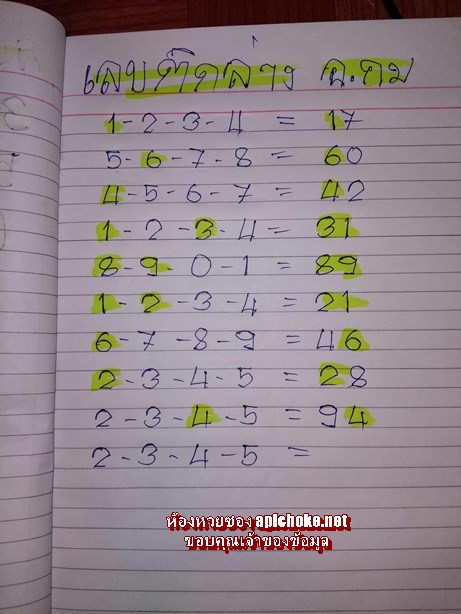 เลขติดล่าง อ.คม
1-2-3-4 = 17
5-6-7-8 = 60
4-5-6-7 = 42
1-2-3-4 = 31
8-9-0-1 = 89
1-2-3-4 = 21
6-7-8-9 = 46
2-3-4-5 = 28
2-3-4-5 = 94
2-3-4-5 =
ห้องหวยซอง apichoke.net
ขอบคุณเจ้าของข้อมูล